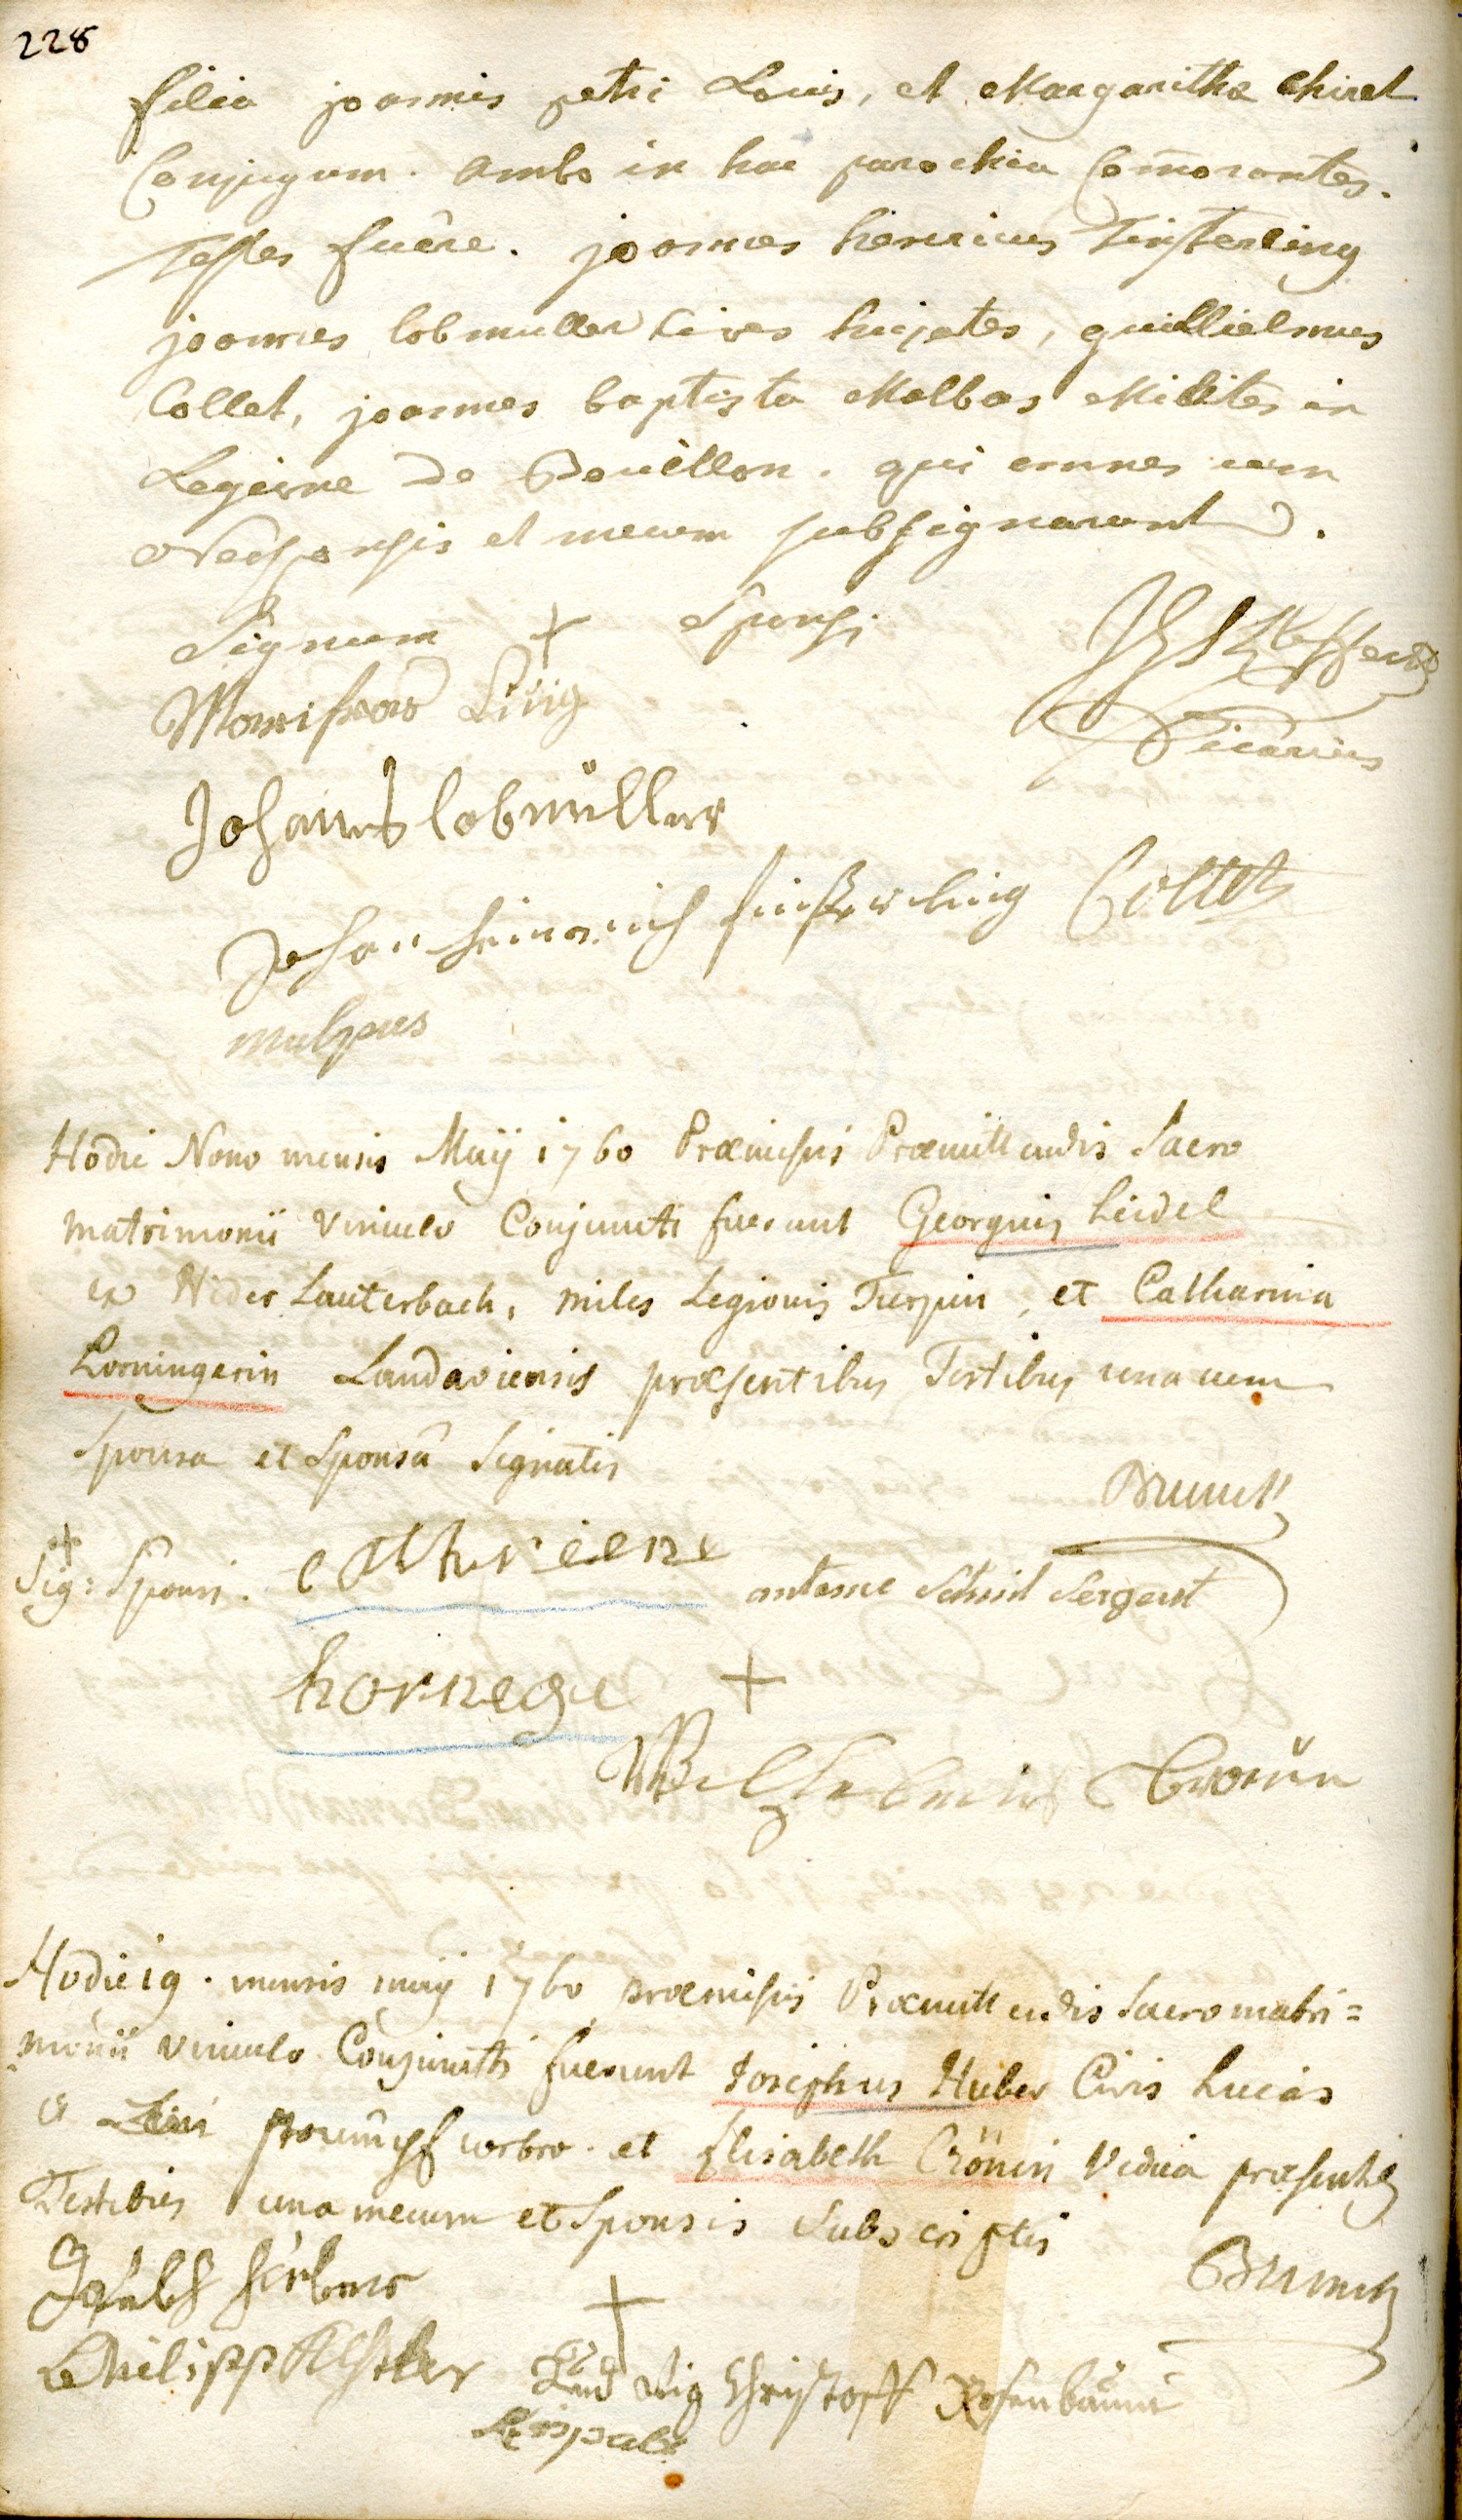 228
filia joannis petri Louis, et Margaritha Chiret
Conjugum. ambo in hac parochia Com̄orantes.
Testes fuêre. joannes henricus Finsterling
joannes lobmuller Cives hujates, guillielmus
Collet, joannes baptista Malbos Milites in
Legione de Bouillon. qui omnes cum
Neosponsis et mecum subsignarunt.
Signum + Sponsi
Vicarius
Johannes lobmüller
Johan heinrich finsterling Collet
Hodie Nono mensis Maij 1760 Præmissis Præmittendis Sacro
matrimonii vinculo Conjuncti fuerunt Georgius Leidel
ex Nider Lauterbach, miles Legionis Turpin, et Catharina
Horningerin Landaviensis præsentibus Testibus una cum
Sponsa et Sponsâ Signatis
+
Sig: Sponsi. cathreiene antone Schmit Sergent
hornege +
Hodie 19. mensis maij 1760 præmissis Præmittendis Sacro matri=
monii vinculo Conjuncti fuerunt Josephus Huber Civis huias
et et Elisabeth Crönin Vidua præsentib
Testibus una mecum et Sponsis Subscriptis
+
Philipp
Ludwig Christoff Rosenbaum